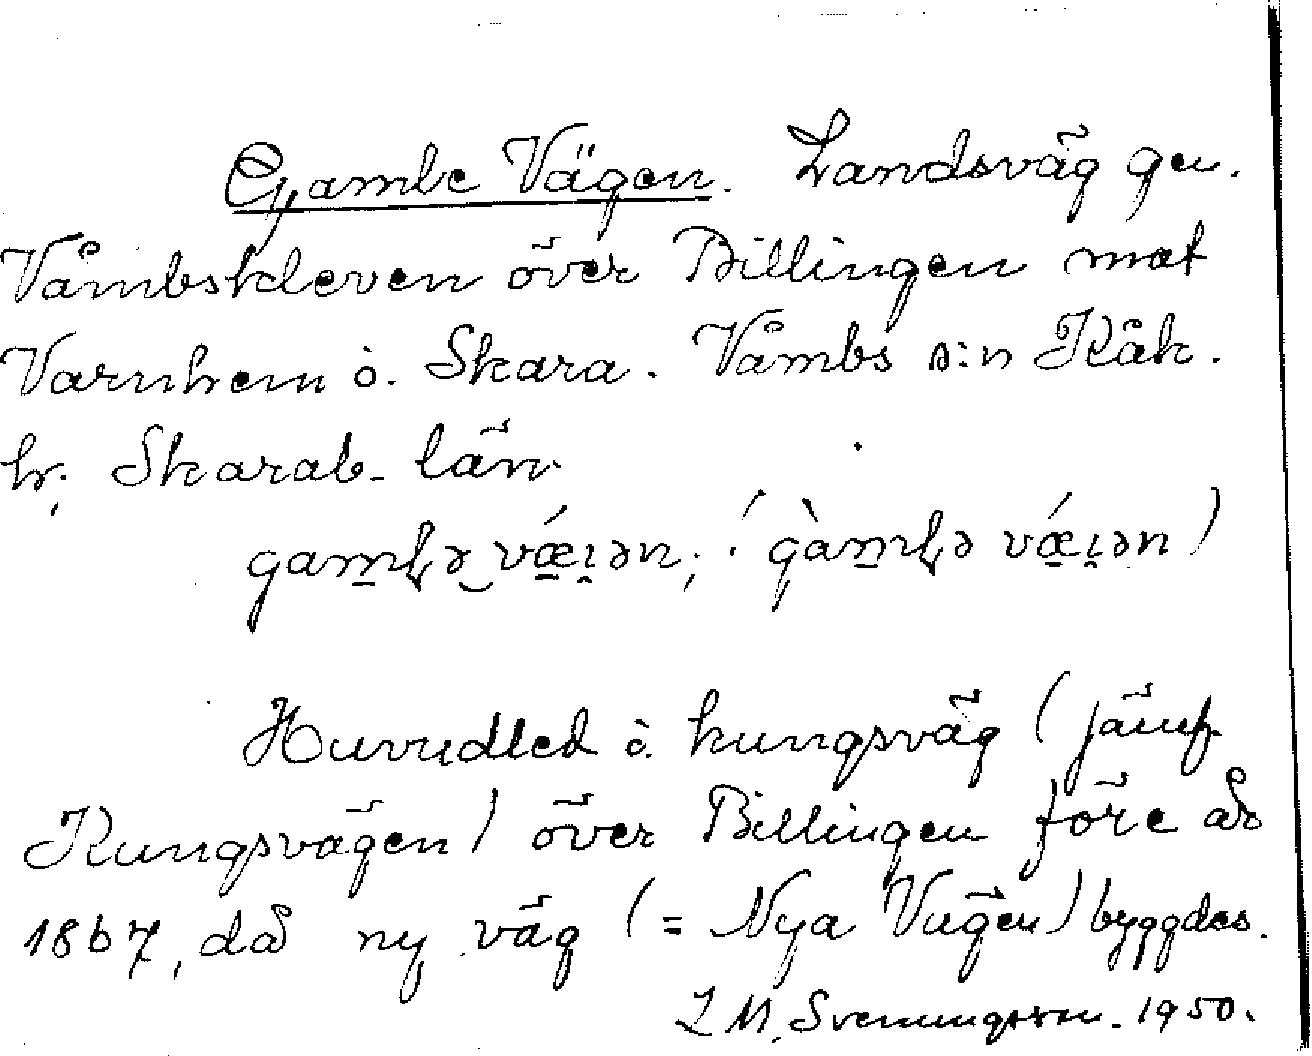 Gamle Vägen. Landsväg gen.
Våmbskleven över Billingen mot
Varnhem o. Skara. Våmbs s:n Kåk.
hr. Skarab. län.
Huvudled o. kungsväg (jämf
Kungsvägen) över Billingen före år
1867, då ny väg (= Nya Vägen) byggdes.
L M. Svenungsson. 1950.